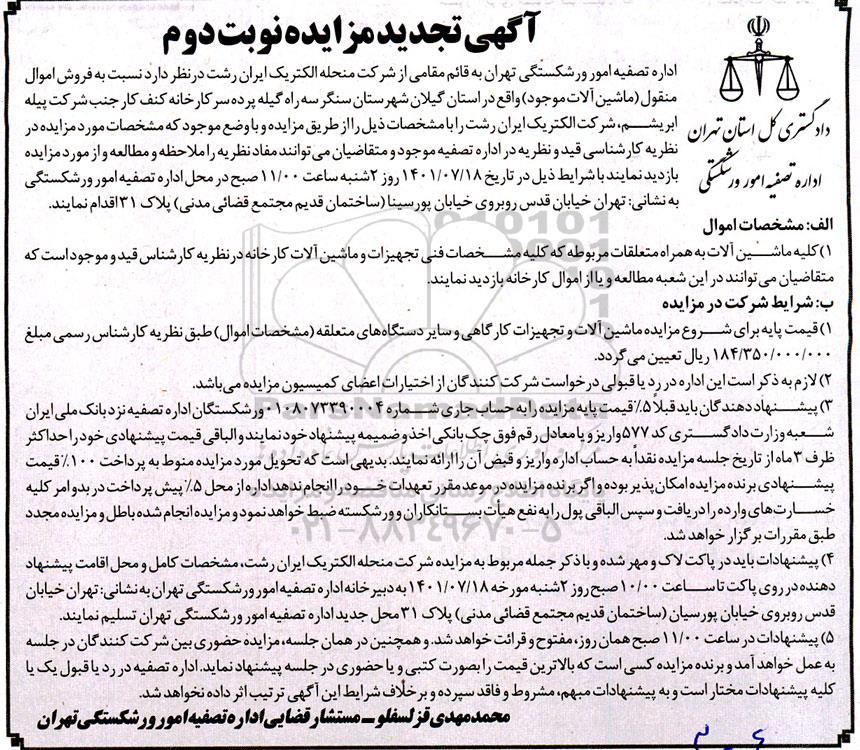 آگهی تجدید مزایده نوبت دوم
دادگستری کل استان تهران
اداره تصفیه امور ورشکستگی
اداره تصفیه امور ورشکستگی تهران به قائم مقامی از شرکت منحله الکتریک ایران رشت در نظر دارد نسبت به فروش اموال
منقول (ماشین آلات موجود) واقع در استان گیلان شهرستان سنگر سه راه گیله پرده سر کارخانه کنف کار جنب شرکت پیله
ابریشم، شرکت الکتریک ایران رشت را با مشخصات ذیل را از طریق مزایده و با وضع موجود که مشخصات مورد مزایده در
نظریه کارشناسی قید و نظریه در اداره تصفیه موجود و متقاضیان می توانند مفاد نظریه را ملاحظه و مطالعه و از مورد مزایده
بازدید نمایند با شرایط ذیل در تاریخ ۱۴۰۱/۰۷/۱۸ روز ۲شنبه ساعت ۱۱/۰۰ صبح در محل اداره تصفیه امور ورشکستگی
به نشانی: تهران خیابان قدس روبروی خیابان پورسینا (ساختمان قدیم مجتمع قضائی مدنی) پلاک ۳۱ اقدام نمایند.
الف: مشخصات اموال
۱) کلیه ماشین آلات به همراه متعلقات مربوطه که کلیه مشخصات فنی تجهیزات و ماشین آلات کارخانه در نظریه کارشناس قید و موجود است که
متقاضیان می توانند در این شعبه مطالعه و یا از اموال کارخانه بازدید نمایند.
ب: شرایط شرکت در مزایده
۱) قیمت پایه برای شروع مزایده ماشین آلات و تجهیزات کارگاهی و سایر دستگاه های متعلقه (مشخصات اموال) طبق نظریه کارشناس رسمی مبلغ
۱۸۴/۳۵۰/۰۰۰/۰۰۰ ریال تعیین می گردد.
۲) لازم به ذکر است این اداره در رد یا قبولی درخواست شرکت کنندگان از اختیارات اعضای کمیسیون مزایده می باشد.
۳) پیشنهاد دهندگان باید قبلاً ۵٪ قیمت پایه مزایده را به حساب جاری شماره ۰۱۰۸۰۷۳۳۹۰۰۰۴ ورشکستگان اداره تصفیه نزد بانک ملی ایران
شعبه وزارت دادگستری کد ۵۷۷ واریز و یا معادل رقم فوق چک بانکی اخذ و ضمیمه پیشنهاد خود نمایند و الباقی قیمت پیشنهادی خود را حداکثر
ظرف ۳ ماه از تاریخ جلسه مزایده نقداً به حساب اداره واریز و قبض آن را ارائه نمایند. بدیهی است که تحویل مورد مزایده منوط به پرداخت ۱۰۰٪ قیمت
پیشنهادی برنده مزایده امکان پذیر بوده و اگر برنده مزایده در موعد مقرر تعهدات خود را انجام ندهد اداره از محل ۵٪ پیش پرداخت در بدو امر کلیه
خسارت های وارده را دریافت و سپس الباقی پول را به نفع هیأت بستانکاران و ورشکسته ضبط خواهد نمود و مزایده انجام شده باطل و مزایده مجدد
طبق مقررات برگزار خواهد شد.
۴) پیشنهادات باید در پاکت لاک و مهر شده و با ذکر جمله مربوط به مزایده شرکت منحله الکتریک ایران رشت، مشخصات کامل و محل اقامت پیشنهاد
دهنده در روی پاکت تا ساعت ۱۰/۰۰ صبح روز ۲شنبه مورخه ۱۴۰۱/۰۷/۱۸ به دبیرخانه اداره تصفیه امور ورشکستگی تهران به نشانی: تهران خیابان
قدس روبروی خیابان پورسیان (ساختمان قدیم مجتمع قضائی مدنی) پلاک ۳۱ محل جدید اداره تصفیه امور ورشکستگی تهران تسلیم نمایند.
۵) پیشنهادات در ساعت ۱۱/۰۰ صبح همان روز، مفتوح و قرائت خواهد شد. و همچنین در همان جلسه، مزایده حضوری بین شرکت کنندگان در جلسه
به عمل خواهد آمد و برنده مزایده کسی است که بالاترین قیمت را بصورت کتبی و یا حضوری در جلسه پیشنهاد نماید. اداره تصفیه در رد یا قبول یک یا
کلیه پیشنهادات مختار است و به پیشنهادات مبهم، مشروط و فاقد سپرده و برخلاف شرایط این آگهی ترتیب اثر داده نخواهد شد.
محمدمهدی قزلسفلو ـ مستشار قضایی اداره تصفیه امور ورشکستگی تهران
ParsNamadData
۰۲۱-۸۸۳۴۹۶۷۰-۵